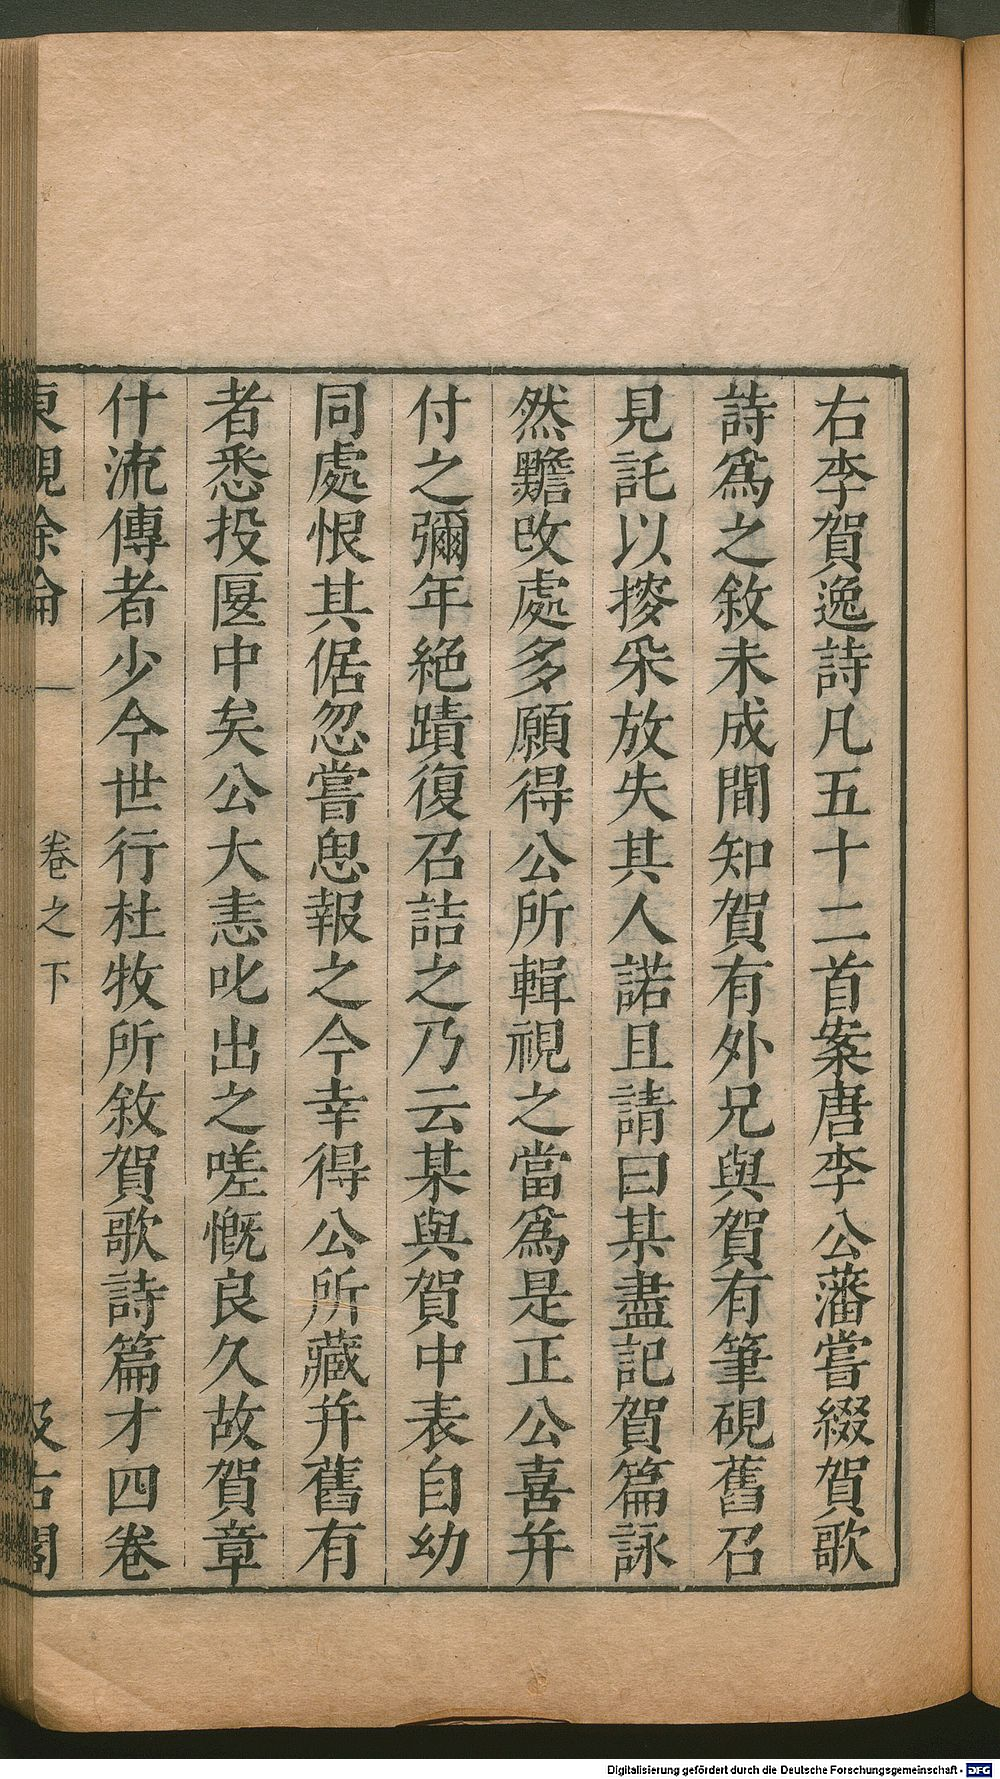 右李賀逸詩凡五十二首案唐李公藩嘗綴賀歌
詩爲之敘未成聞知賀有外兄與賀有筆硯舊召
見託以㨮采放失其人諾且請曰某盡記賀篇詠
然黵改處多願得公所輯視之當爲是正公喜并
付之彌年絕蹟復召詰之乃云某與賀中表自幼
同處恨其倨忽嘗思報之今幸得公所藏并舊有
者悉投匽中矣公大恚叱出之嗟慨良久故賀章
什流傳者少今世行杜牧所敘賀歌詩篇才四卷
東觀餘論
卷之下
汲古閣
Digitalisierung gefördert durch die Deutsche Forschungsgemeinschaft - DFG